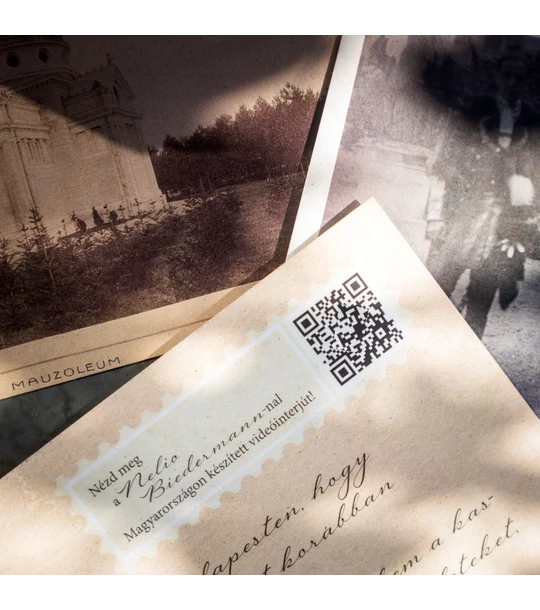 MAUZOLEUM
Nézd meg
a Nelio
Biedermann-nal
Magyarországon készített videóinterjút!
hogy
korábban
a kas-